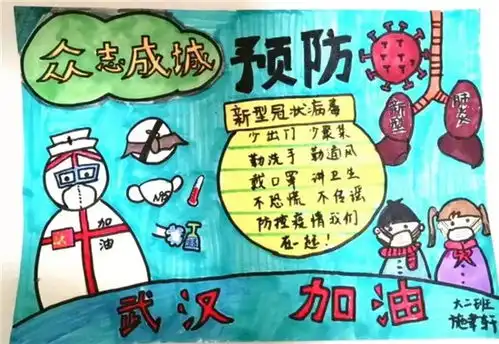 众志成城
预防
新型
肺炎
新型冠状病毒
少出门 少聚集
勤洗手 勤通风
戴口罩 讲卫生
不恐慌 不传谣
防控疫情我们
在一起!
N95
加油
武汉 加油
大二班